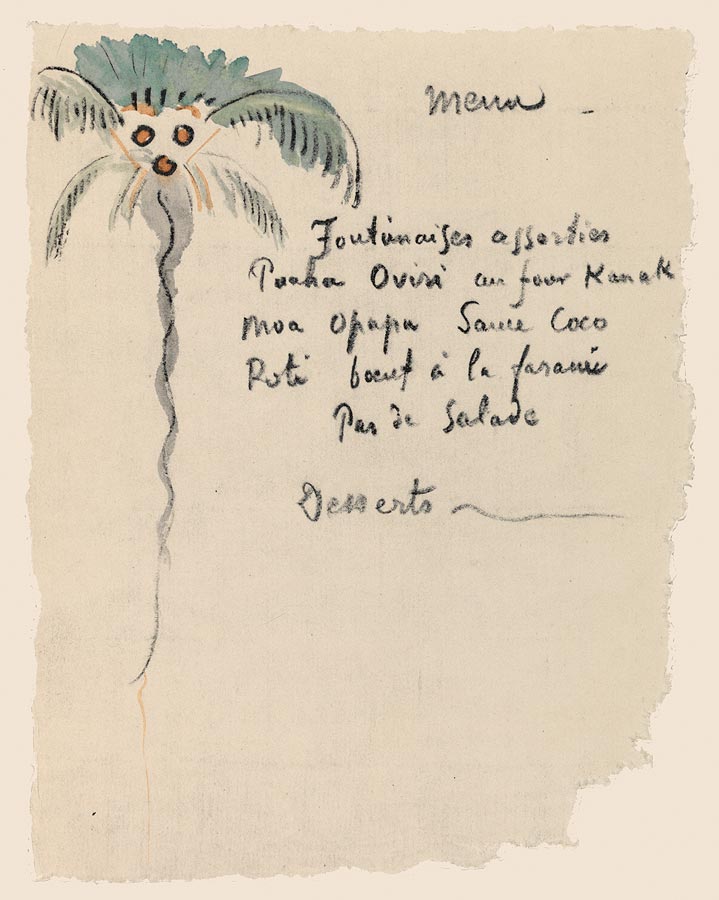 Menu -
Foutunaises assorties
Puaha Oviri au four Kanak
Moa Opapa Sauce Coco
Roti boeuf à la farani
Pas de Salade
Desserts